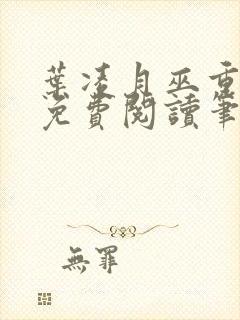 葉凌月巫重
免費閱讀筆
無罪